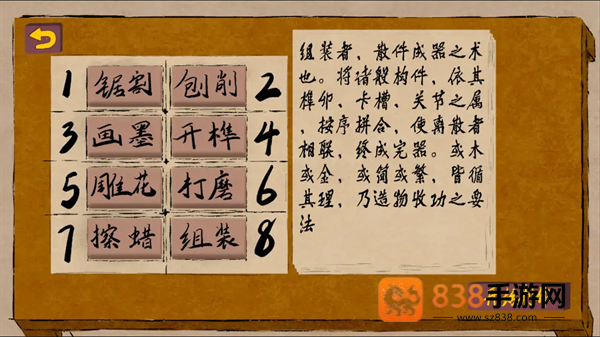 1 锯割 刨削 2
3 画墨 开榫 4
5 雕花 打磨 6
7 擦蜡 组装 8
组装者，散件成器之术
也。将诸般构件，依其
榫卯、卡槽、关节之属
，按序拼合，使离散者
相联，终成完器。或木
或金，或简或繁，皆循
其理，乃造物收功之要
法
838
手游网
www.sz838.com